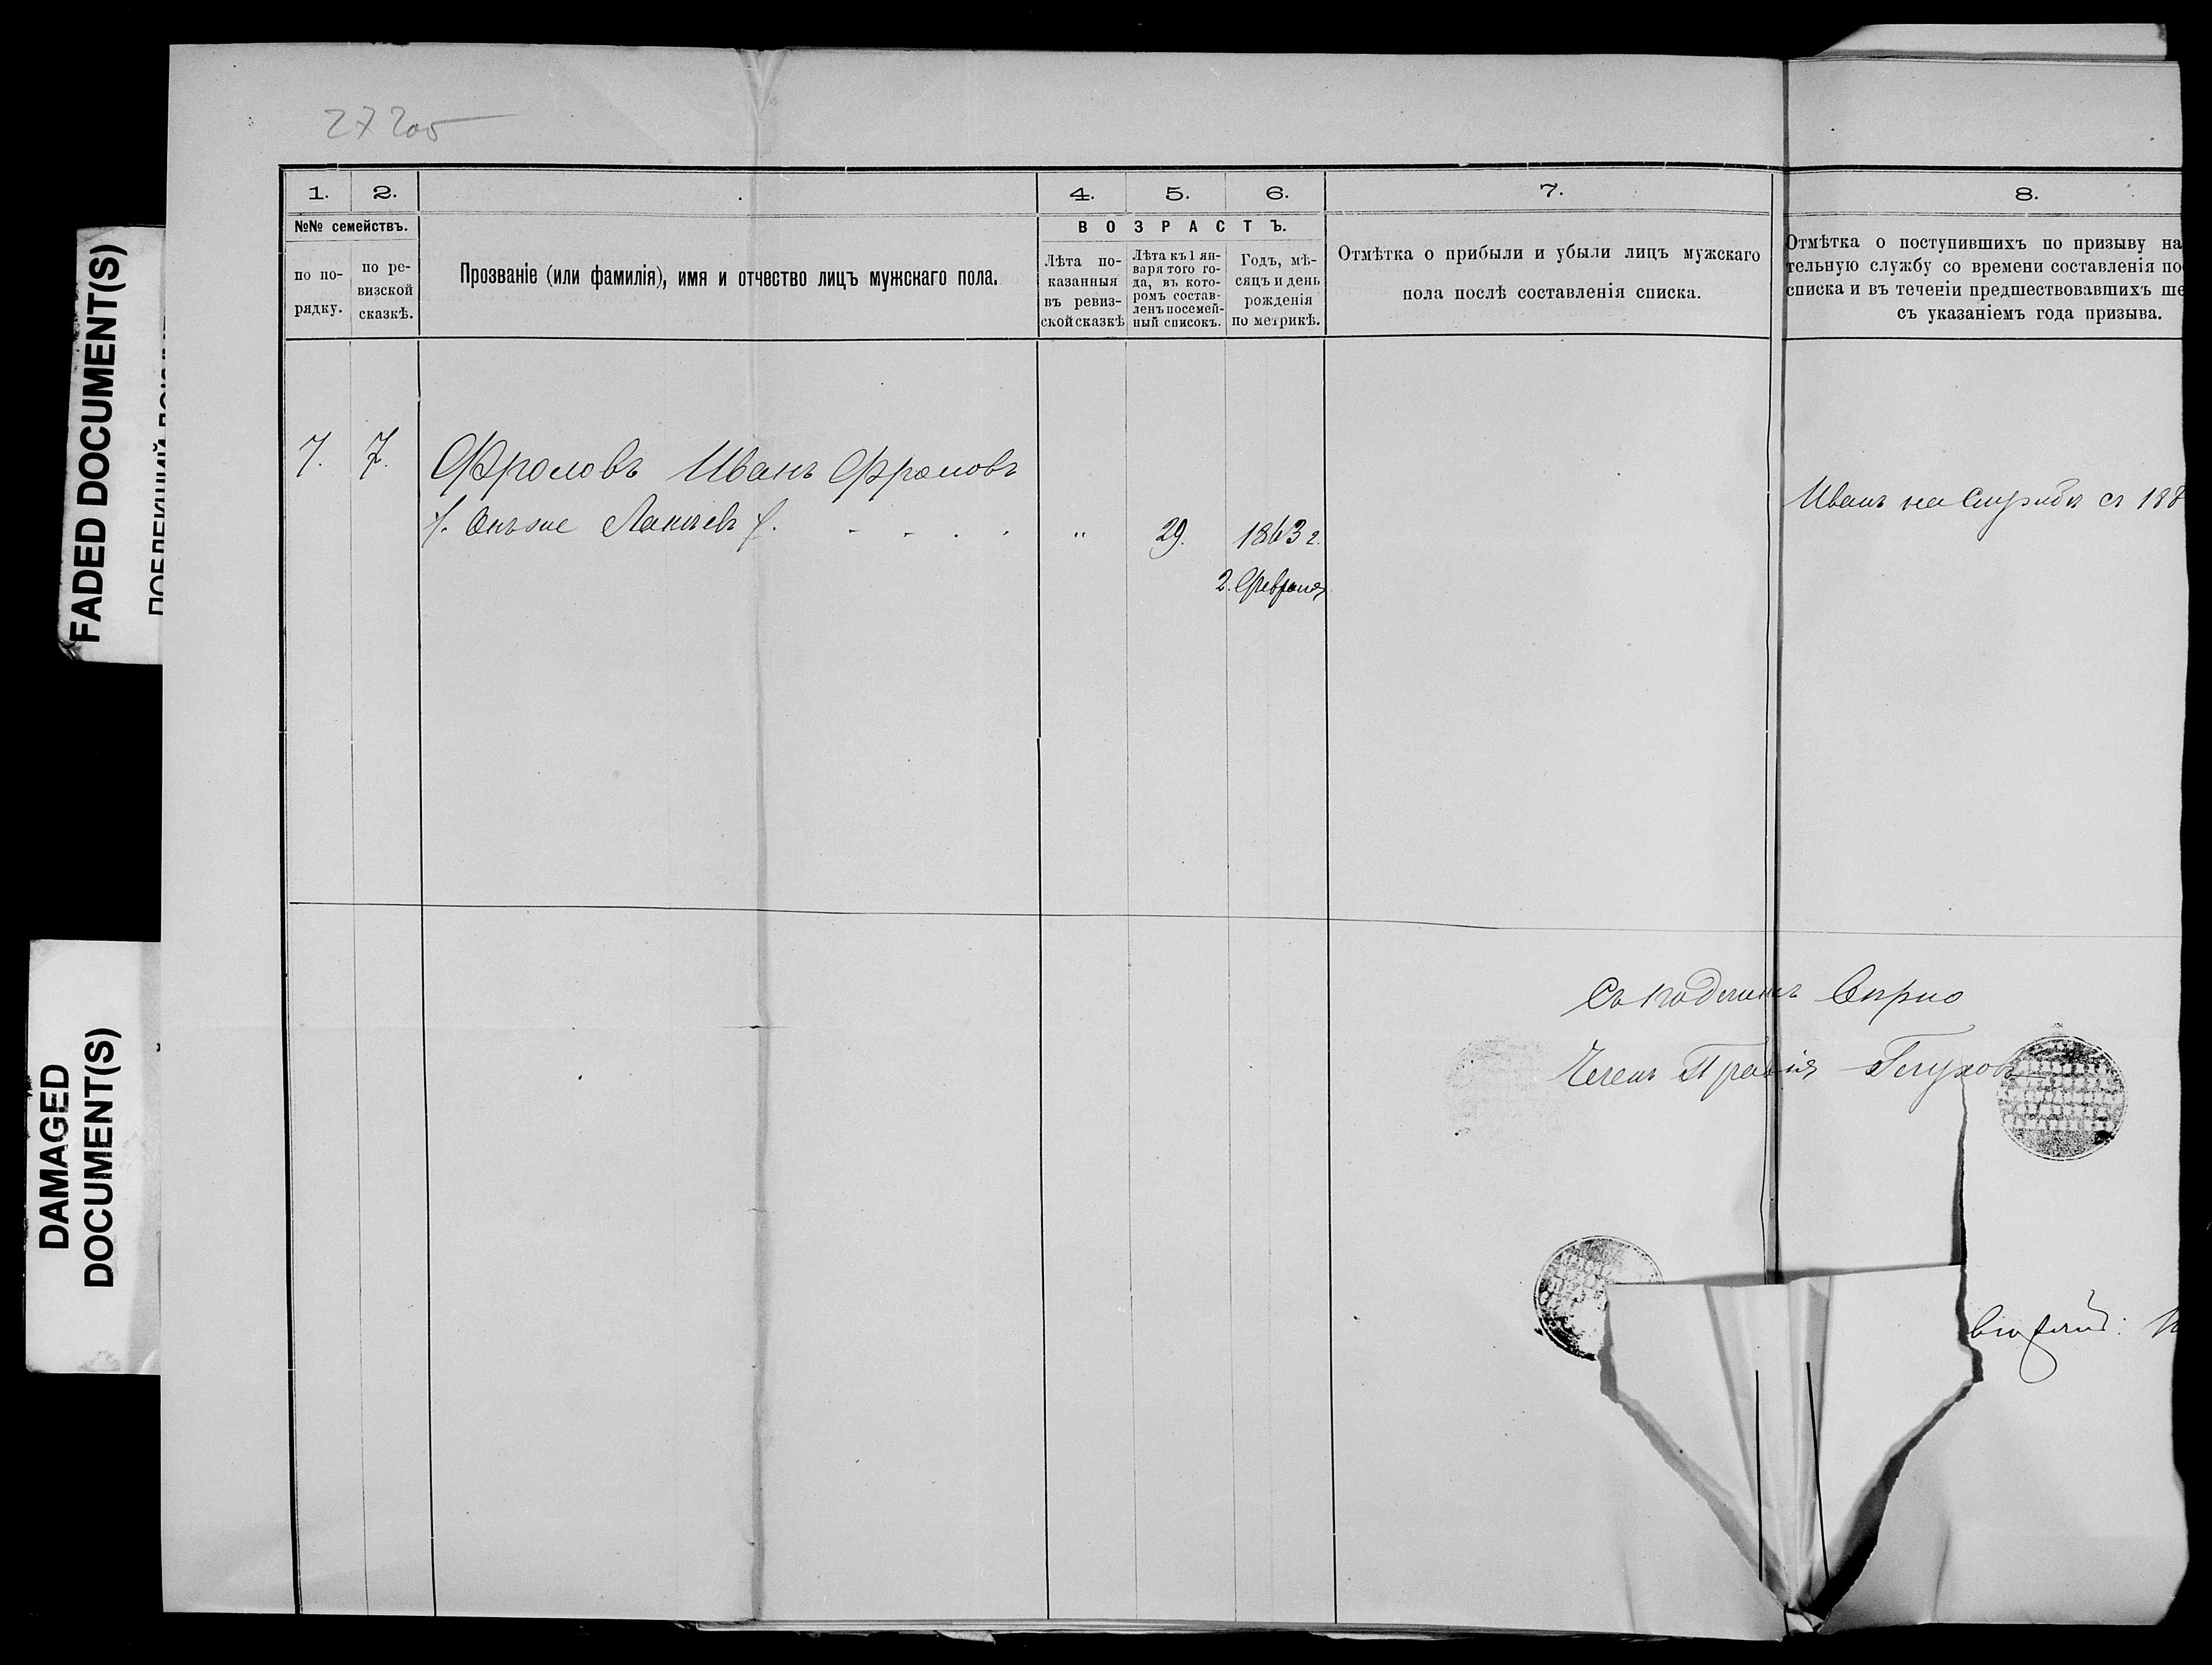 27 205
1. 2. 4. 5. 6. 7. 8.
№№ семействъ.
по по-
рядку.
по ре-
визской
сказкѣ.
Прозваніе (или фамилія), имя и отчество лицъ мужскаго пола.
ВОЗРАСТЪ.
Лѣта по-
казанныя
въ ревиз-
ской сказкѣ
Лѣта къ 1 ян-
варя того го-
да, въ кото-
ромъ состав-
ленъ посемей-
ный списокъ.
Годъ, мѣ-
сяцъ и день
рожденія
по метрикѣ.
Отмѣтка о прибыли и убыли лицъ мужскаго
пола послѣ составленія списка.
Отмѣтка о поступившихъ по призыву на
тельную службу со времени составленія по
списка и въ теченіи предшествовавшихъ ше
съ указаніемъ года призыва.
7. 7. Фроловъ Иванъ Фроловъ
/. Онъ же /. . . . . " 29. 1863 г.
2. Февраля
Иванъ на службѣ съ 188
Съ подлинымъ вѣрно
Членъ Правія Глуховъ
FADED DOCUMENT(S)
DAMAGED
DOCUMENT(S)